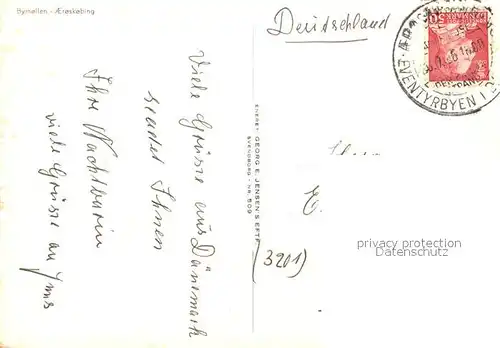 Bymøllen - Ærøskøbing
Viele Grüsse aus Dänemark
sendet Ihnen
Ihre Nachbarin
viele Grüsse an
ENERET: GEORG E. JENSENS EFTF.
SVENDBORG - NR. 509
Deutschland
EVENTYRBYEN I D
E.
(3201)
privacy protection
Datenschutz